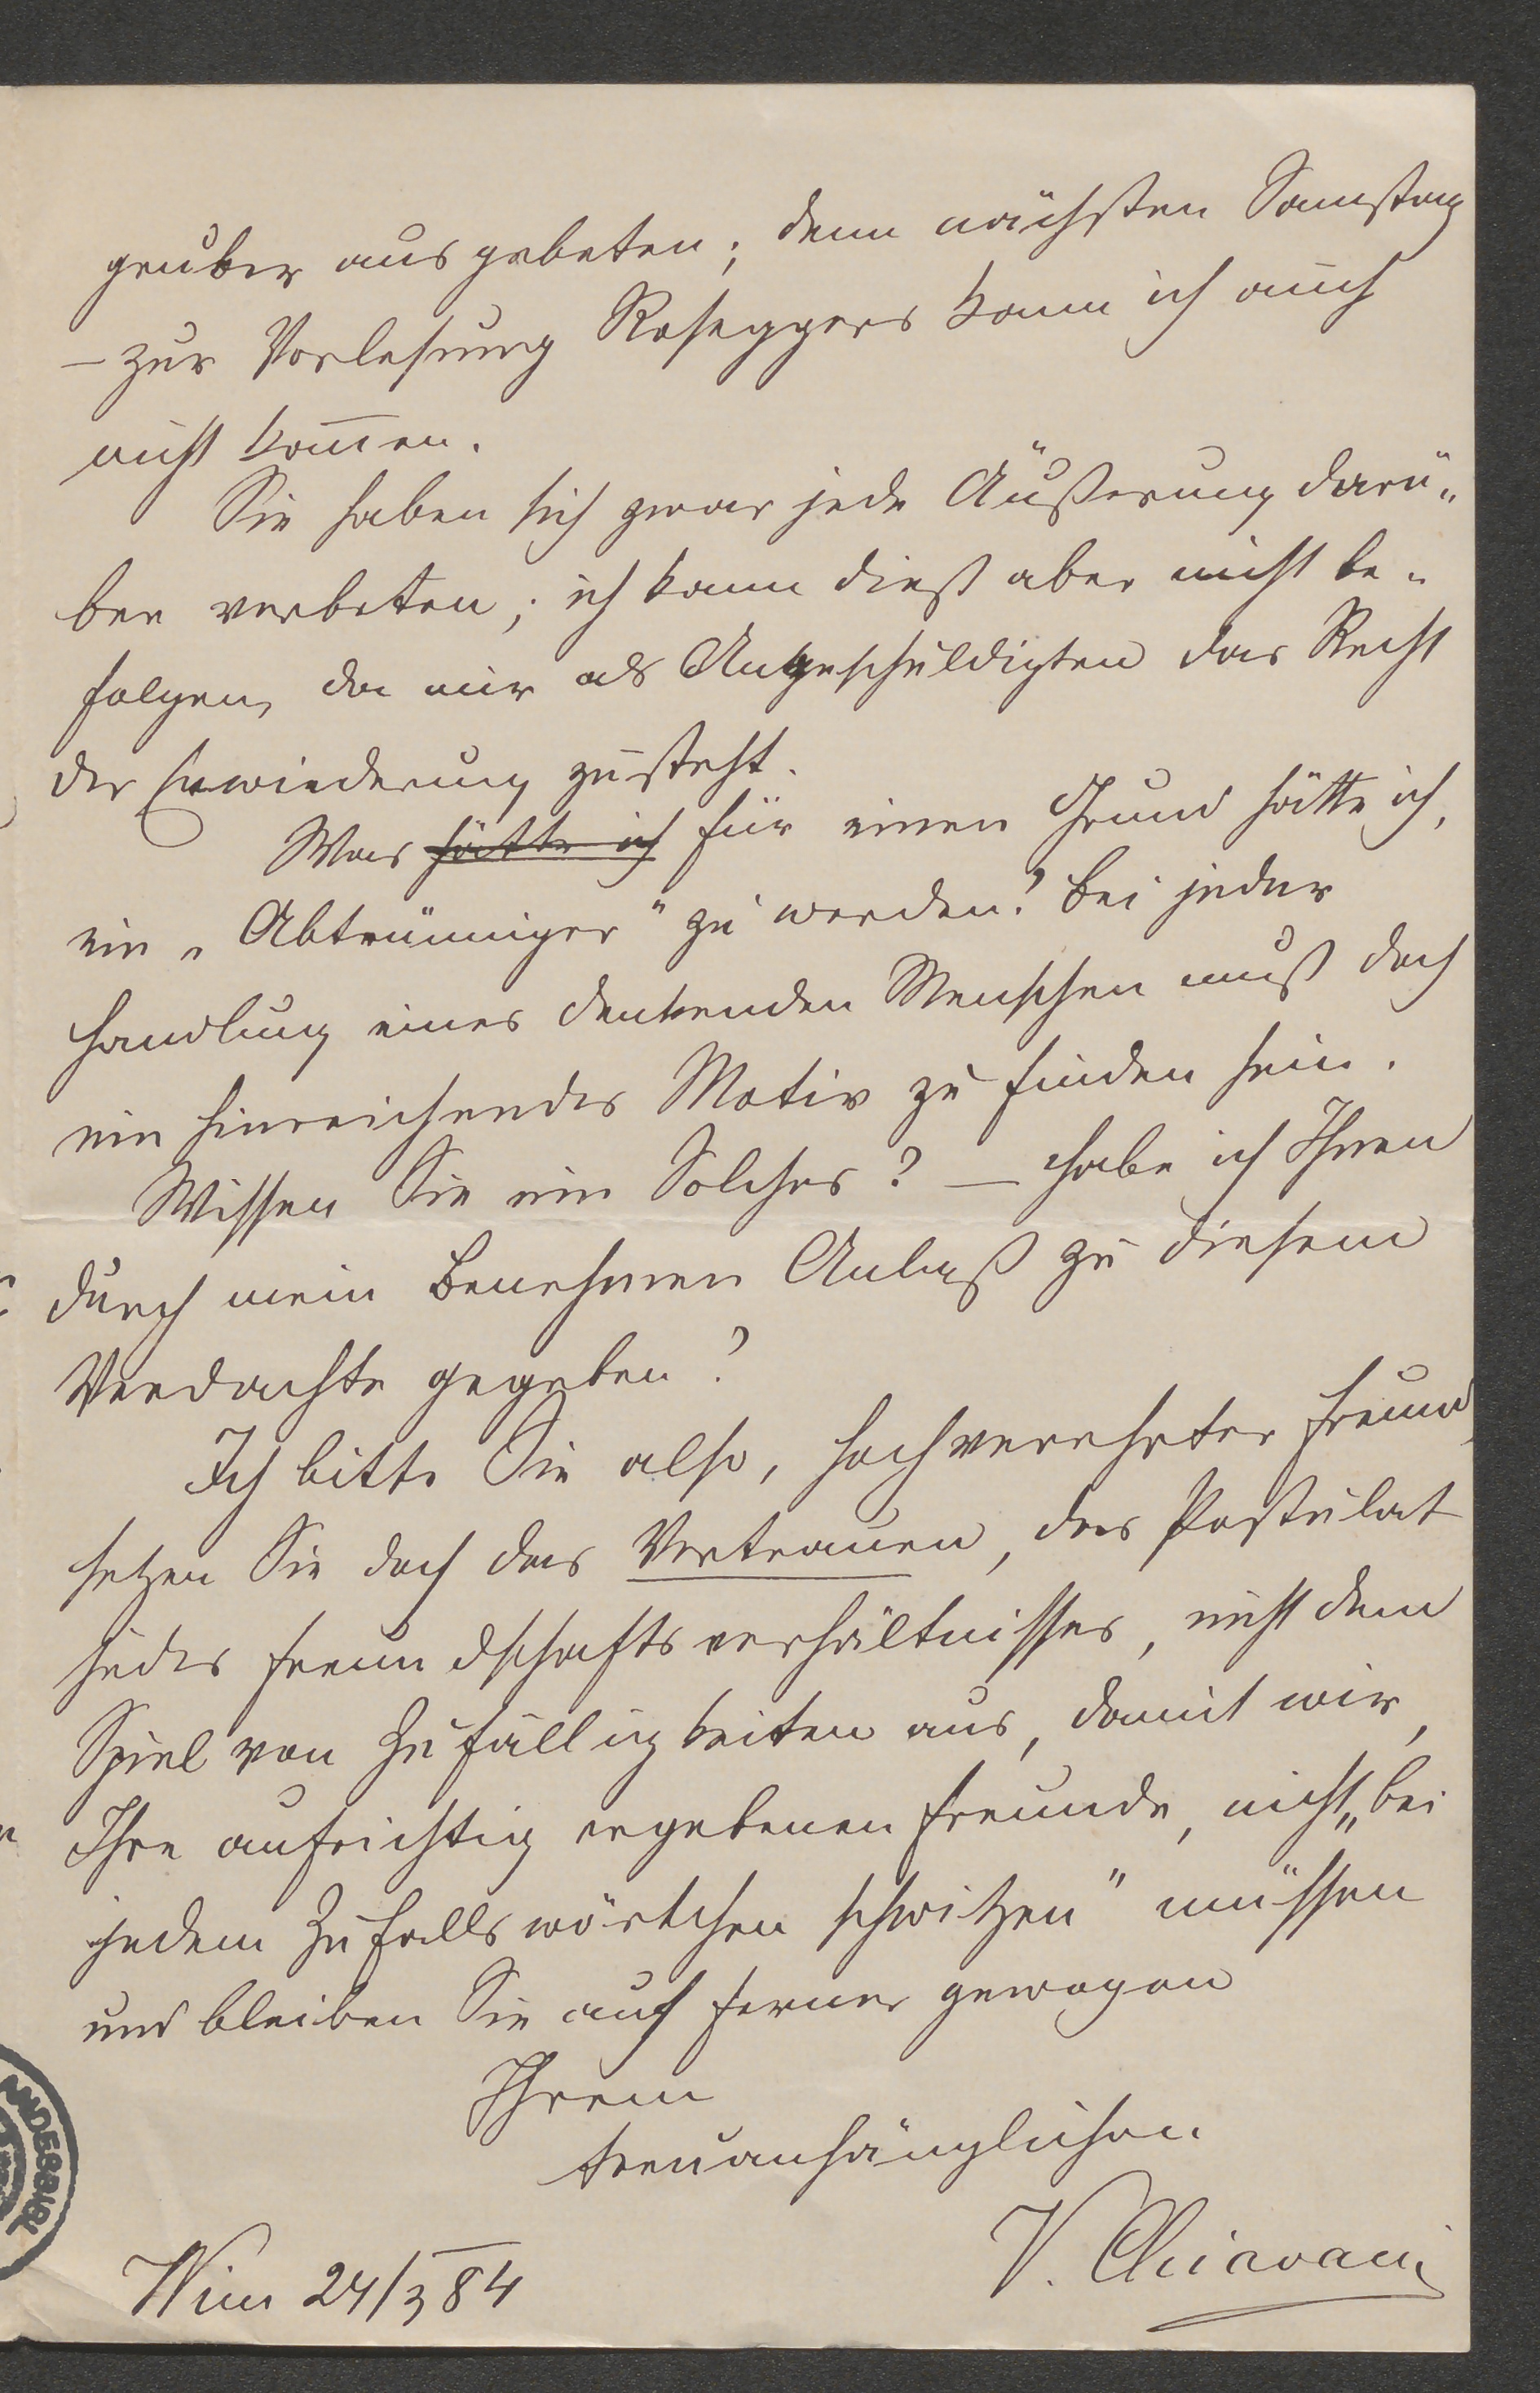 gruber ausgebeten; denn nächsten Samstag
– zur Vorlesung Roseggers kann ich auch
nicht kom̅en.
Sie haben sich zwar jede Äußerung darü„
ber verbeten; ich kann dieß aber nicht be„
folgen, da mir als Angeschuldigten das Recht
der Erwiederung zusteht.
Was hätte ich für einen Grund hätte ich,
ein „Abtrünniger“ zu werden? Bei jeder
Handlung eines denkenden Menschen muß doch
ein hinreichendes Motiv zu finden sein.
Wissen Sie ein Solches? – Habe ich Ihnen
durch mein Benehmen Anlaß zu diesem
Verdachte gegeben?
Ich bitte Sie also, hochverehrter Freund,
setzen Sie doch das Vertrauen, das Postulat
jedes Freundschaftsverhältnisses, nicht dem
Spiel von Zufälligkeiten aus, damit wir,
Ihre aufrichtig ergebenen Freunde, nicht „bei
jedem Zufallswörtchen schwitzen“ müssen
und bleiben Sie auch ferner gewogen
Ihrem
treuanhänglichen
V. Chiavacci
Wien 24/3 84
LANDESBIBL